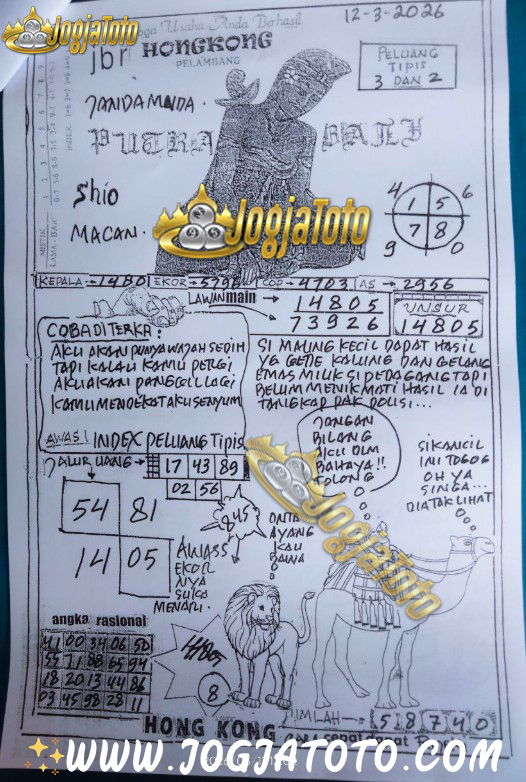 JogjaToto
Usaha Anda Berhasil
12-3-2026
HONGKONG
PELAMBANG
jbr
PELUANG
TIPIS
3 DAN 2
JANDA MUDA.
PUTRA BALI
Shio
MACAN.
4 6
1 5
7 8
9 0
JogjaToto
KEPALA → 1480 EKOR → 5796 COP → 4703 AS → 2956
LAWAN main → 14805
73926
UNSUR
14805
COBA DI TERKA:
AKU AKAN PUNYA WAJAH SEDIH
TAPI KALAU KAMU PERGI
AKU AKAN PANGGIL LAGI
KAMU MENDEKAT AKU SENYUM
SI MALING KECIL DAPAT HASIL
YG GEDE KALUNG DAN GELANG
EMAS MILIK SI PEDAGANG TAPI
BELUM MENIKMATI HASIL IA DI
TANGKAP PAK POLISI...
AWAS! INDEX PELUANG TIPIS
JALUR UANG
17 43 89
02 56
54 81
14 05
845
AWASS
EKOR
NYA
SUKA
MENARI.
JANGAN
BILANG
AKU DLM
BAHAYA!!
TOLONG
SI KANCIL
INI TOGOG
OH YA
SINGA...
DIA TAK LIHAT
JogjaToto
angka rasional
41 00 34 06 50
71 88 65 94
18 20 13 44 86
03 45 98 28 11
8
JMLAH → 5 8 7 4 0
HONG KONG
WWW.JOGJATOTO.COM